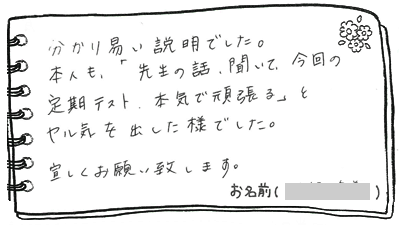 分かり易い説明でした。
本人も、「先生の話、聞いて、今回の
定期テスト、本気で頑張る」と
ヤル気を出した様でした。
宜しくお願い致します。
お名前( )